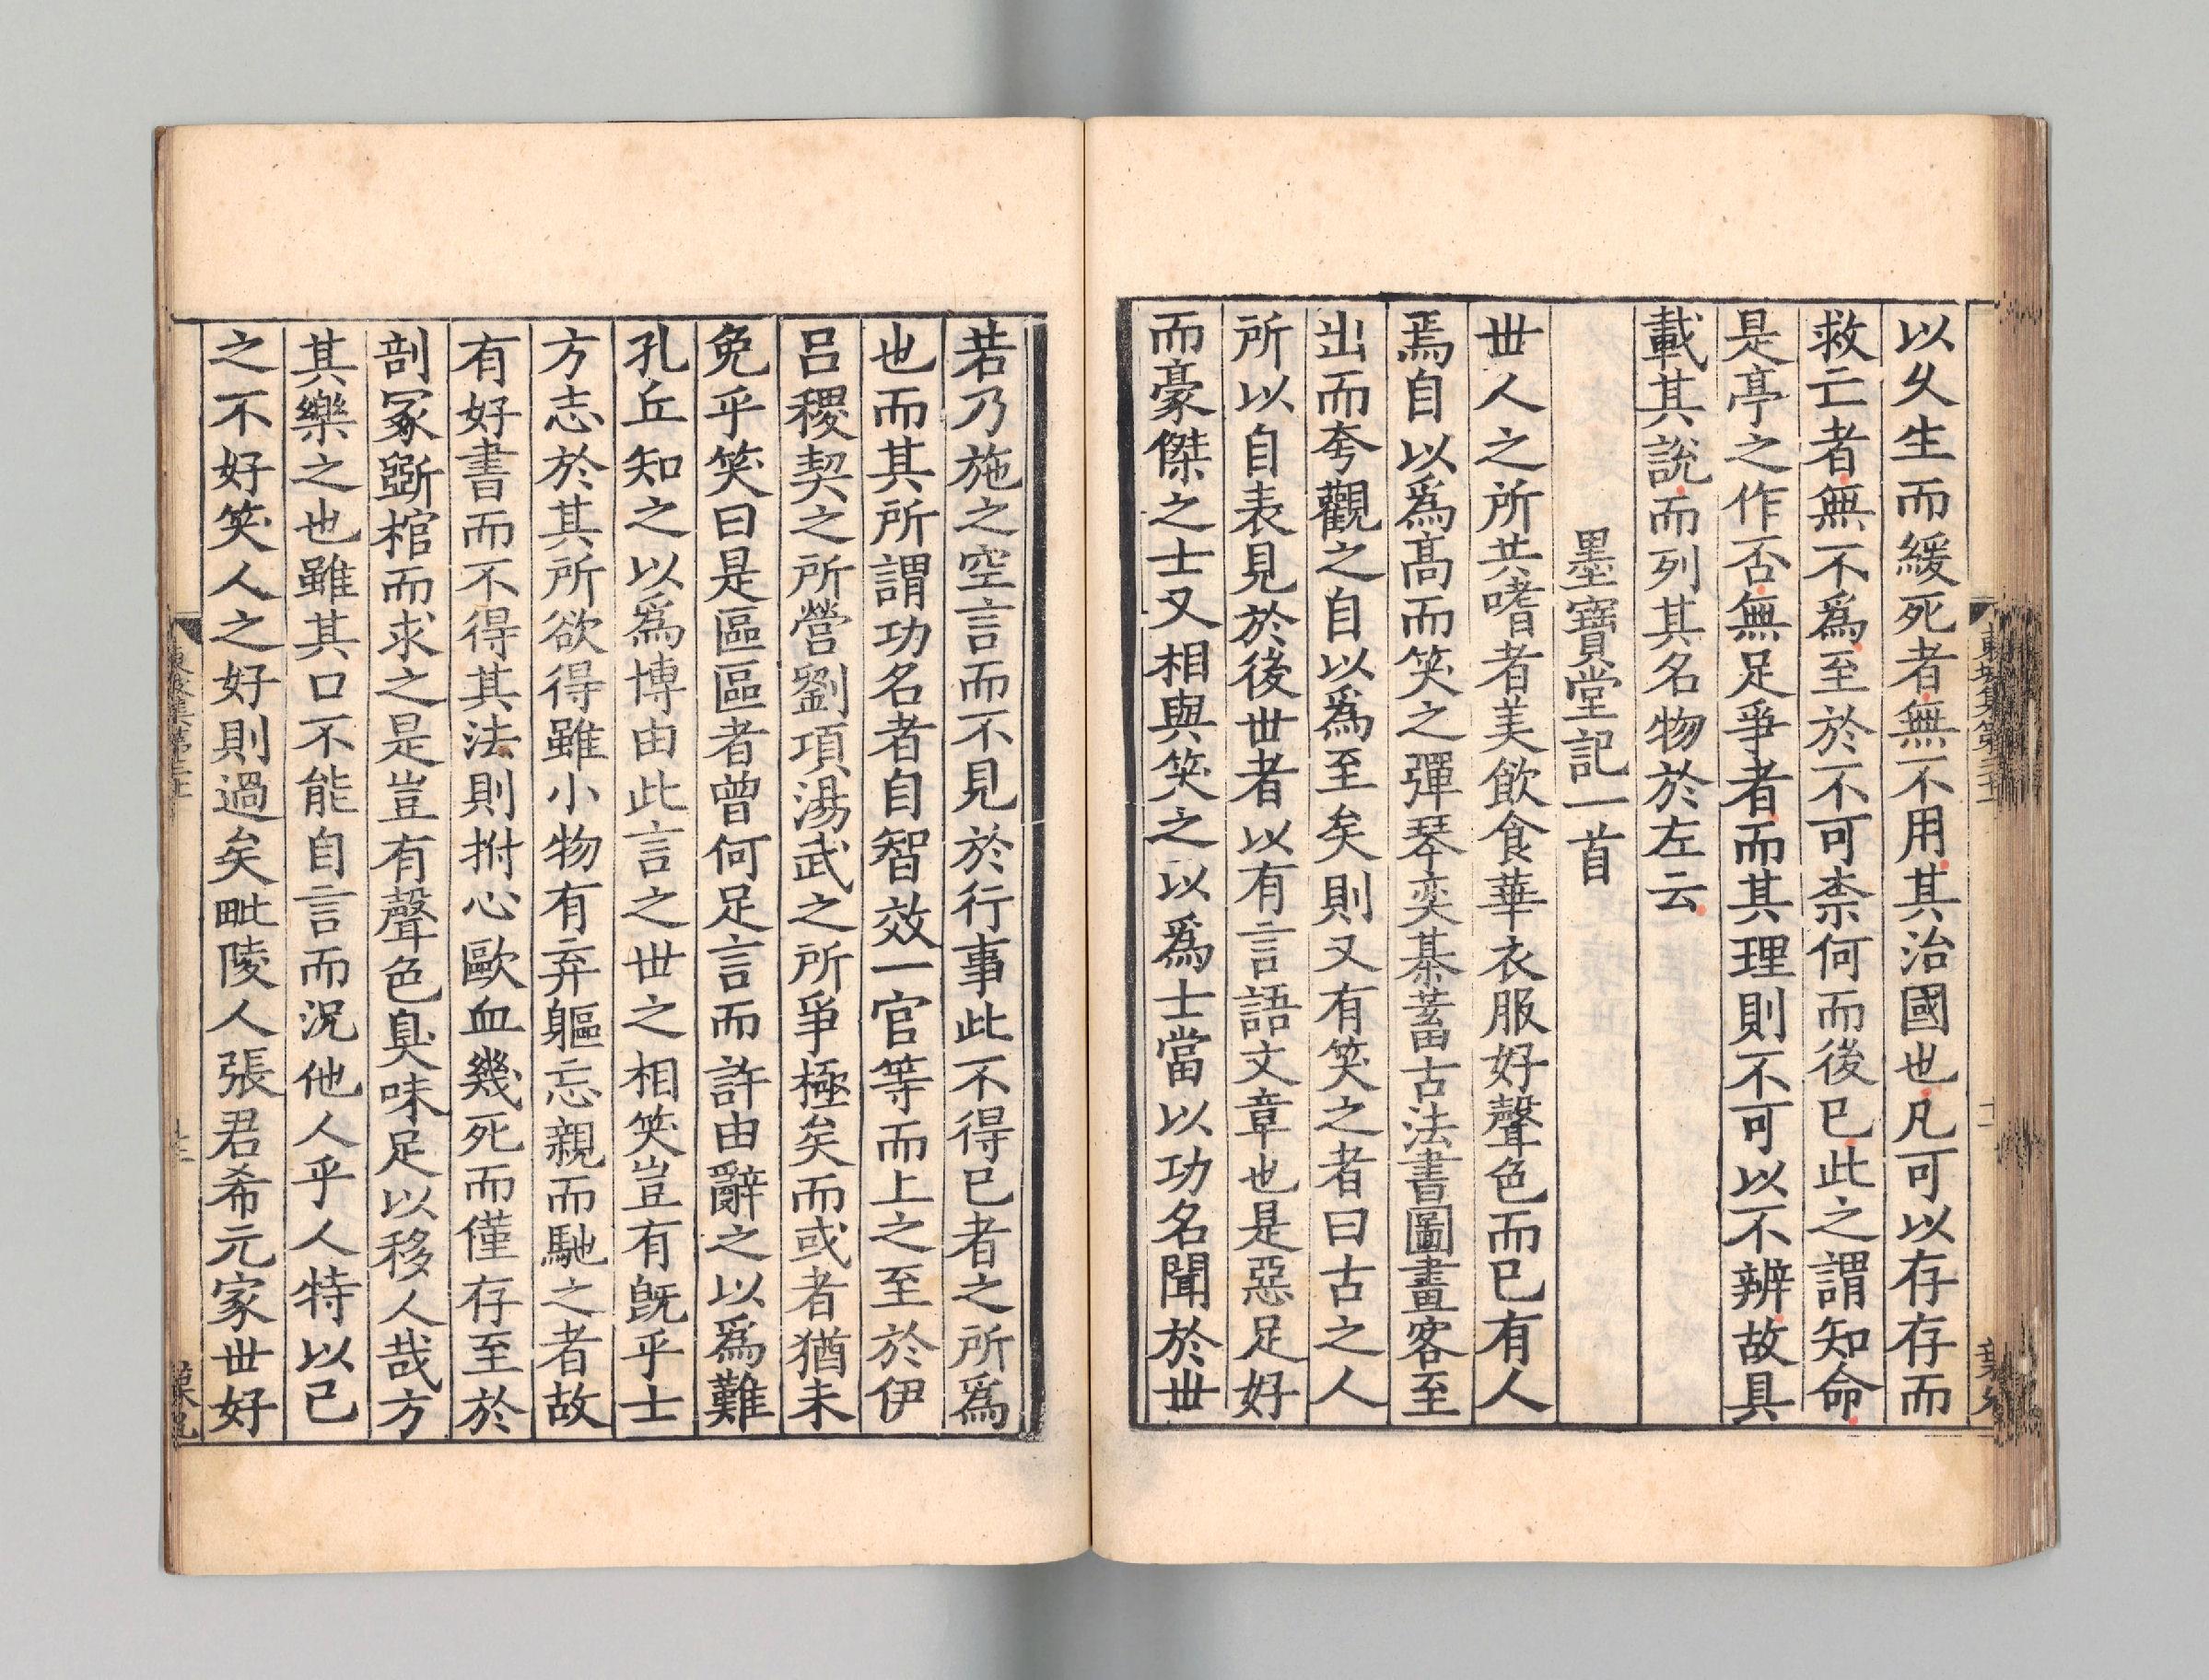 以久生而緩死者無不用其治國也凡可以存存而
救亡者無不爲至於不可柰何而後已此之謂知命
是亭之作否無足爭者而其理則不可以不辨故具
載其說而列其名物於左云
墨寶堂記一首
世人之所共嗜者美飲食華衣服好聲色而已有人
焉自以爲高而笑之彈琴奕棊蓄古法書圖畫客至
出而夸觀之自以爲至矣則又有笑之者曰古之人
所以自表見於後世者以有言語文章也是惡足好
而豪傑之士又相與笑之以爲士當以功名聞於世
若乃施之空言而不見於行事此不得已者之所爲
也而其所謂功名者自智效一官等而上之至於伊
呂稷契之所營劉項湯武之所爭極矣而或者猶未
免乎笑曰是區區者曾何足言而許由辭之以爲難
孔丘知之以爲博由此言之世之相笑豈有旣乎士
方志於其所欲得雖小物有弃軀忘親而馳之者故
有好書而不得其法則拊心歐血幾死而僅存至於
剖冢斲棺而求之是豈有聲色臭味足以移人哉方
其樂之也雖其口不能自言而況他人乎人特以已
之不好笑人之好則過矣毗陵人張君希元家世好